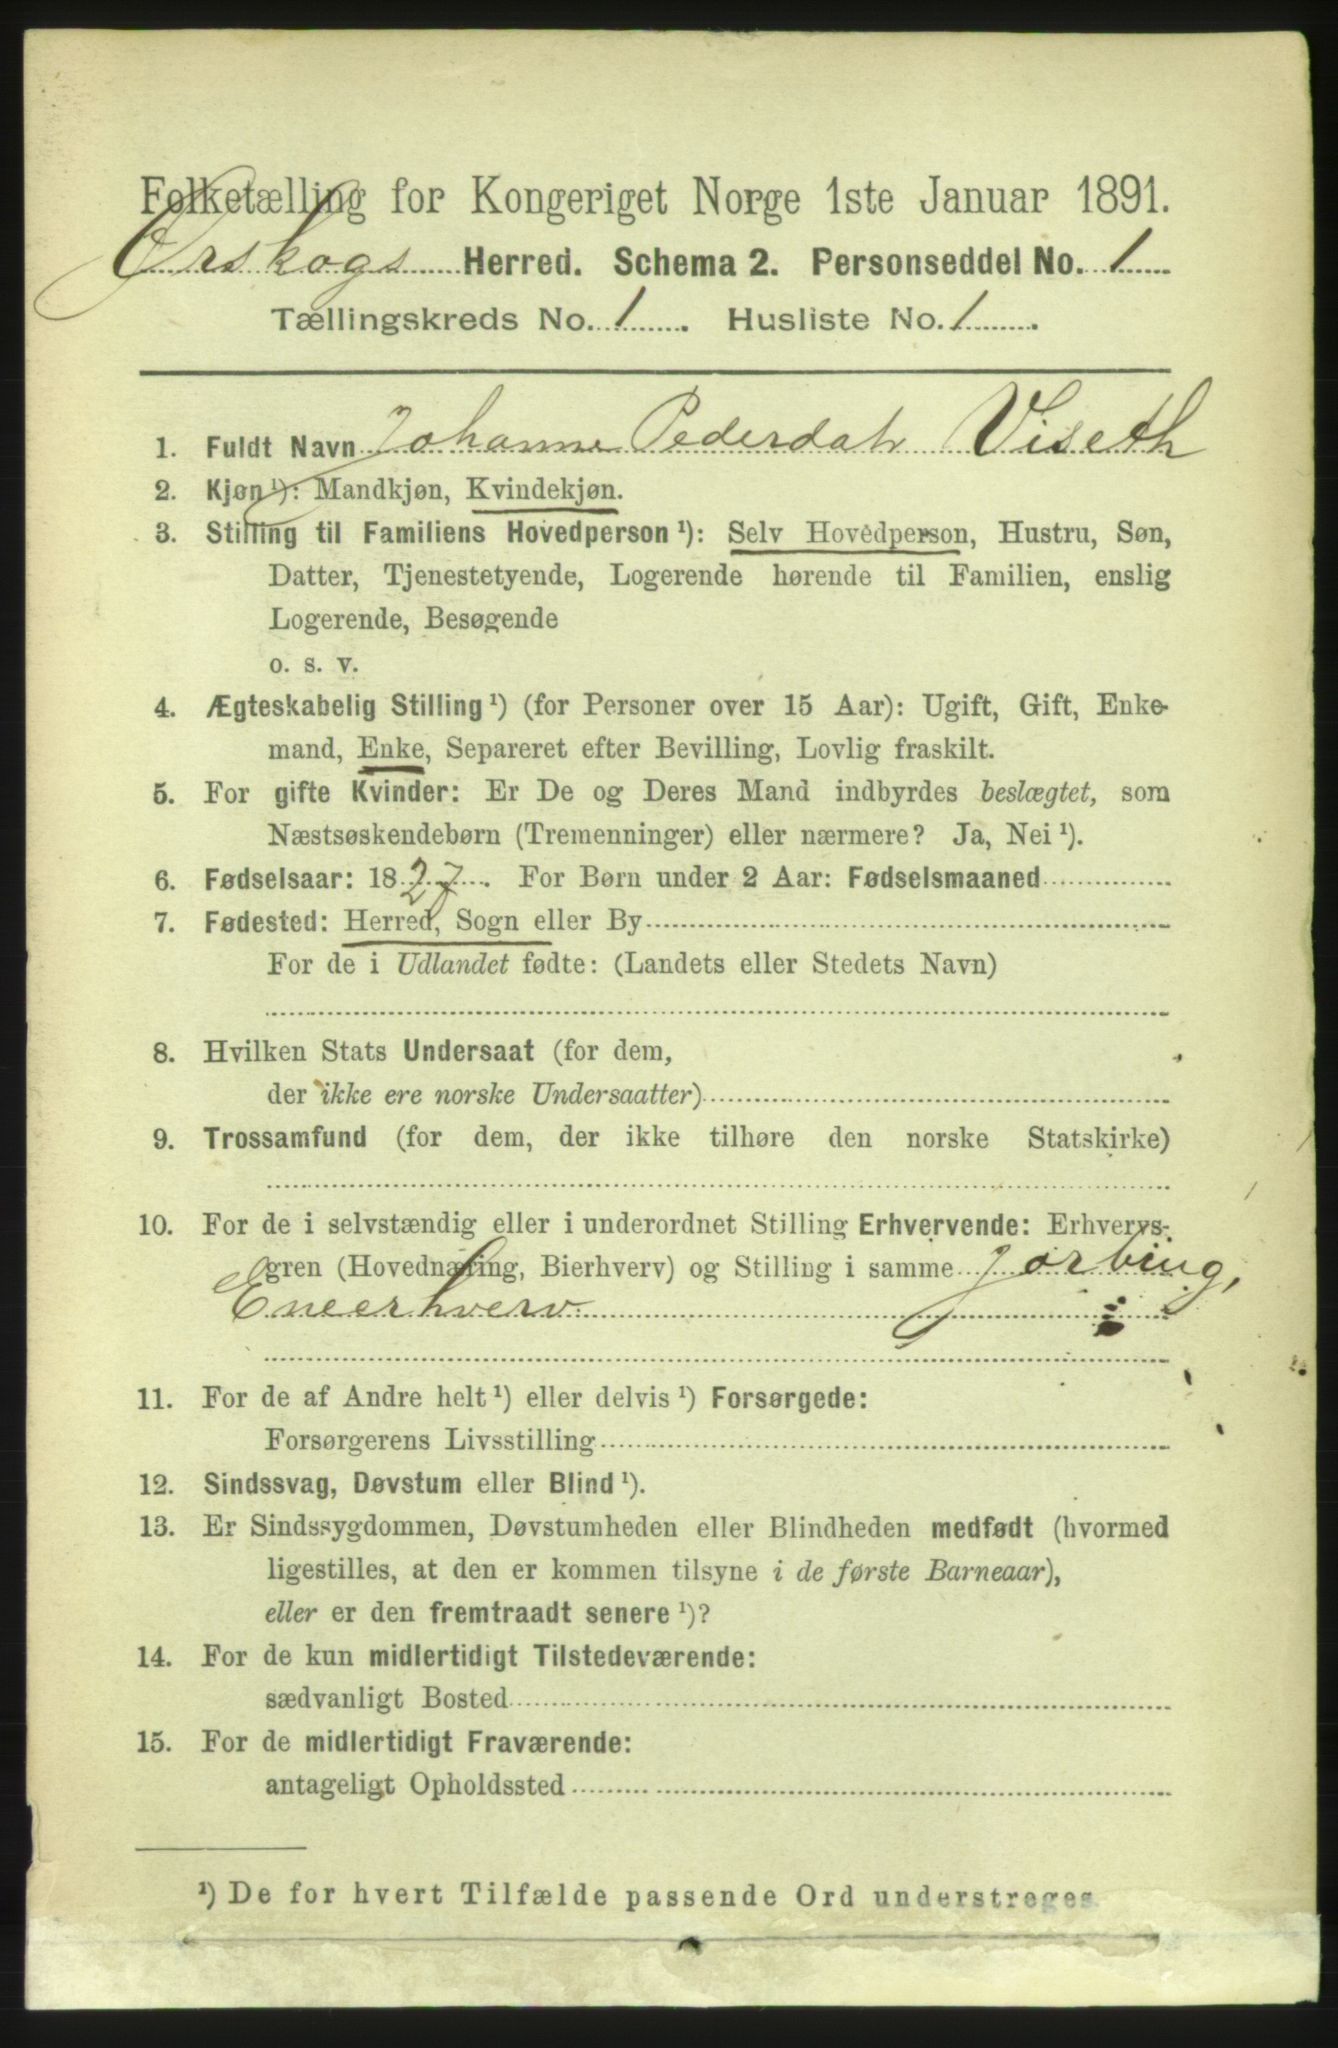 Folketælling for Kongeriget Norge 1ste Januar 1891.
Ørskogs Herred. Schema 2. Personseddel No. 1
Tællingskreds No. 1. Husliste No. 1.
1. Fuldt Navn Johanne Pedersdatr Viseth
2. Kjøn ¹): Mandkjøn, Kvindekjøn.
3. Stilling til Familiens Hovedperson ¹): Selv Hovedperson, Hustru, Søn,
Datter, Tjenestetyende, Logerende hørende til Familien, enslig
Logerende, Besøgende
o. s. v.
4. Ægteskabelig Stilling ¹) (for Personer over 15 Aar): Ugift, Gift, Enke-
mand, Enke, Separeret efter Bevilling, Lovlig fraskilt.
5. For gifte Kvinder: Er De og Deres Mand indbyrdes beslægtet, som
Næstsøskendebørn (Tremenninger) eller nærmere? Ja, Nei ¹).
6. Fødselsaar: 1827. For Børn under 2 Aar: Fødselsmaaned
7. Fødested: Herred, Sogn eller By
For de i Udlandet fødte: (Landets eller Stedets Navn)
8. Hvilken Stats Undersaat (for dem,
der ikke ere norske Undersaatter)
9. Trossamfund (for dem, der ikke tilhøre den norske Statskirke)
10. For de i selvstændig eller i underordnet Stilling Erhvervende: Erhvervs-
gren (Hovednæring, Bierhverv) og Stilling i samme Jorbrug,
Eneerhverv
11. For de af Andre helt ¹) eller delvis ¹) Forsørgede:
Forsørgerens Livsstilling
12. Sindssvag, Døvstum eller Blind ¹).
13. Er Sindssygdommen, Døvstumheden eller Blindheden medfødt (hvormed
ligestilles, at den er kommen tilsyne i de første Barneaar),
eller er den fremtraadt senere ¹)?
14. For de kun midlertidigt Tilstedeværende:
sædvanligt Bosted
15. For de midlertidigt Fraværende:
antageligt Opholdssted
¹) De for hvert Tilfælde passende Ord understreges.